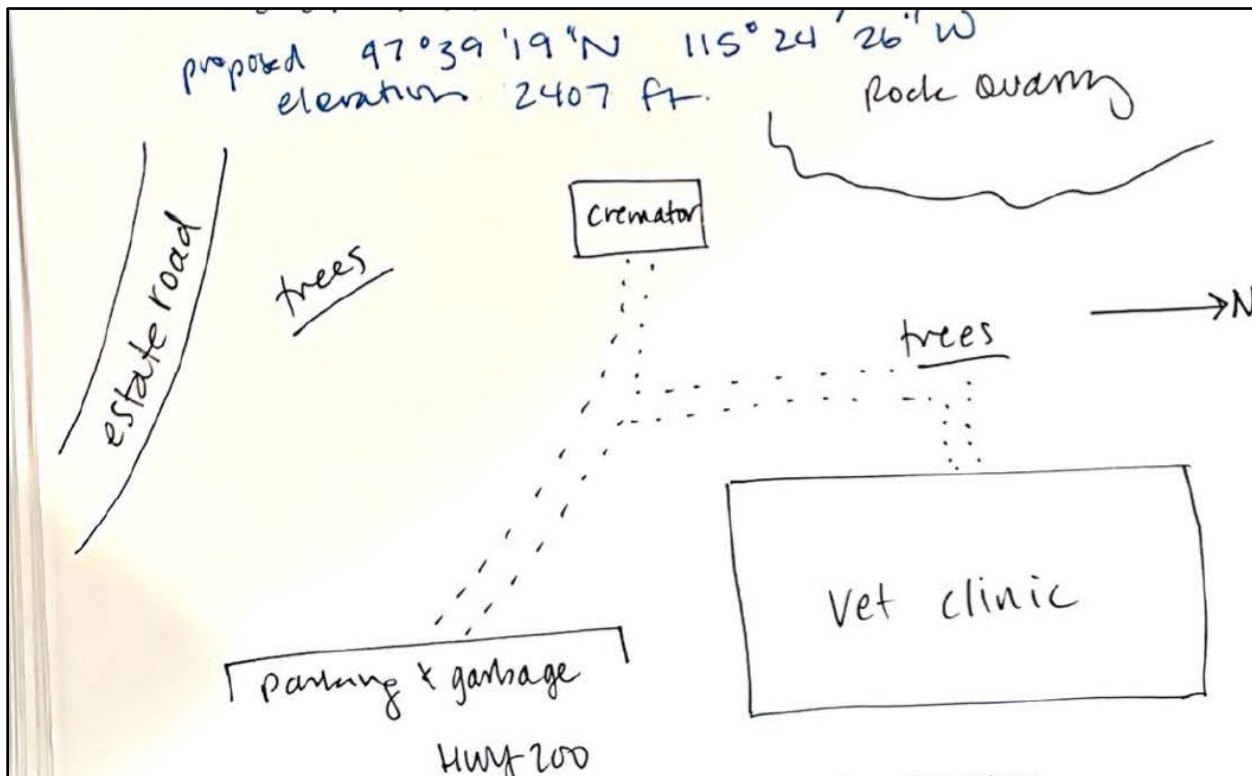 proposed 47°39'19"N 115°24'26"W
elevation 2407 ft.
Rock Quarry
cremator
estate road
trees
N
trees
Vet clinic
parking & garbage
HWY 200